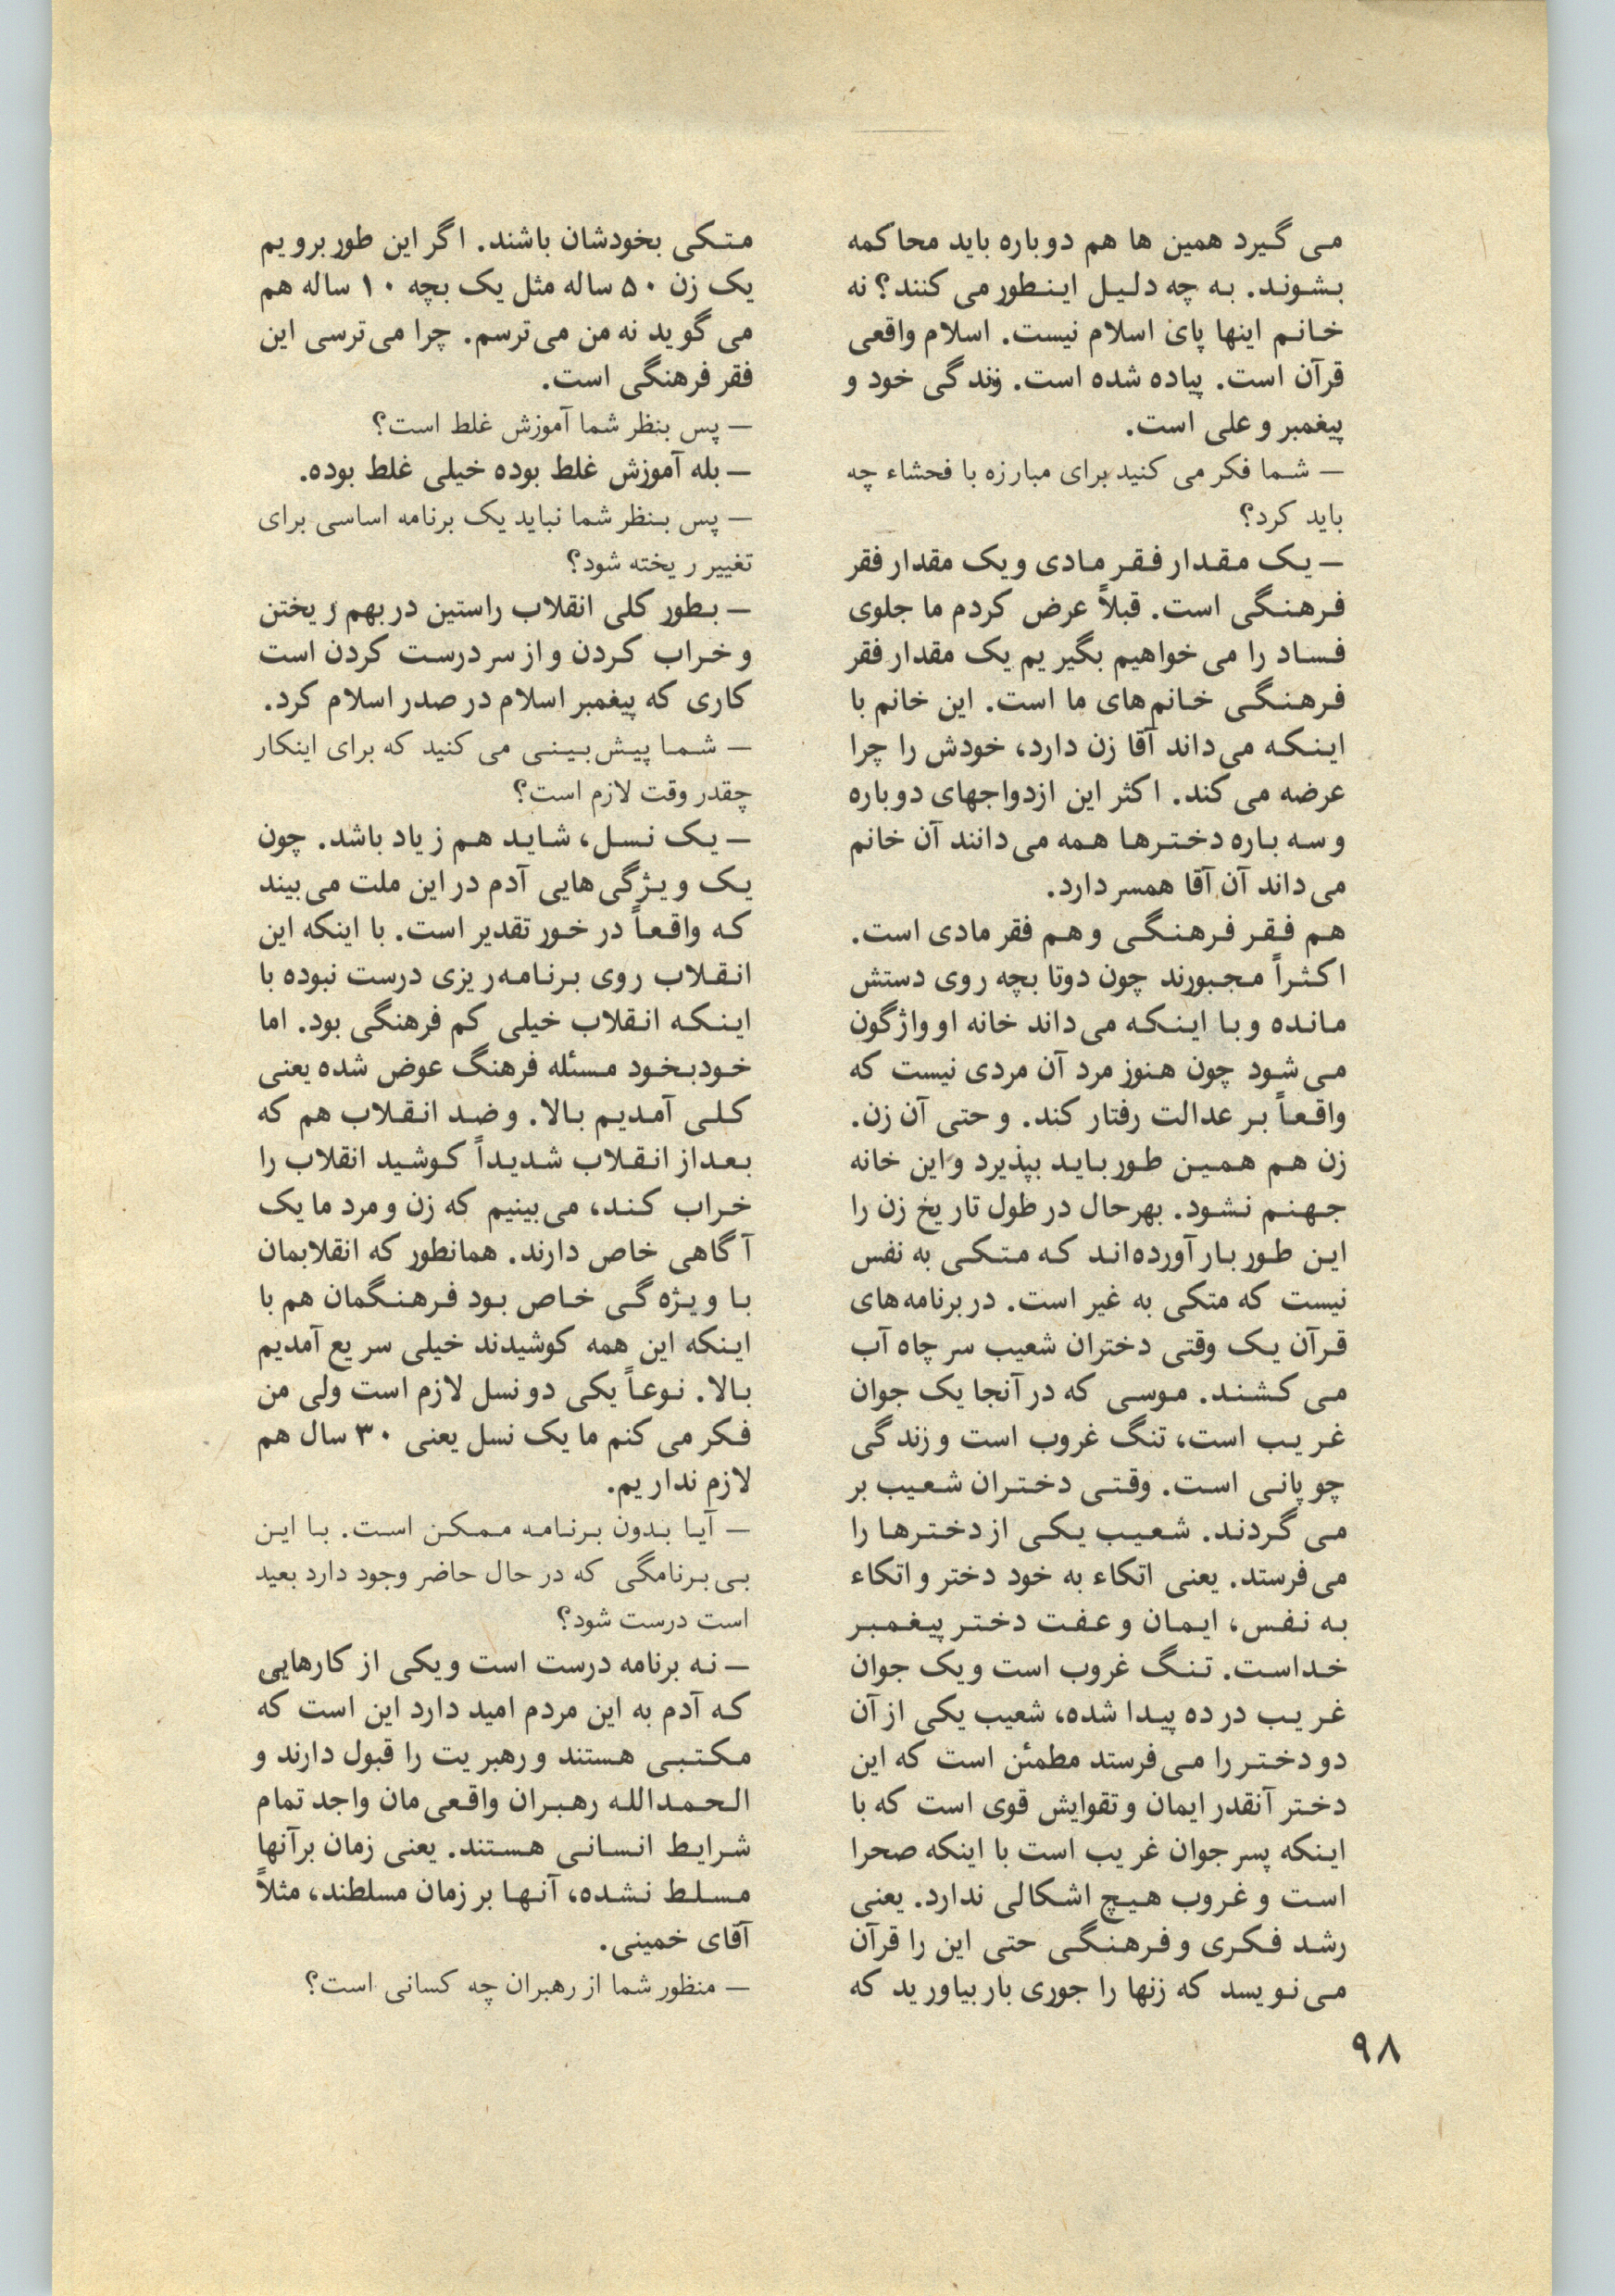 می گیرد همین ها هم دوباره باید محاکمه
بشوند. به چه دلیل اینطور می کنند؟ نه
خانم اینها پای اسلام نیست. اسلام واقعی
قرآن است. پیاده شده است. زندگی خود و
پیغمبر و علی است.
— شما فکر می کنید برای مبارزه با فحشاء چه
باید کرد؟
— یک مقدار فقر مادی و یک مقدار فقر
فرهنگی است. قبلاً عرض کردم ما جلوی
فساد را می خواهیم بگیریم یک مقدار فقر
فرهنگی خانم‌های ما است. این خانم با
اینکه می‌داند آقا زن دارد، خودش را چرا
عرضه می کند. اکثر این ازدواجهای دوباره
و سه باره دخترها همه می‌دانند آن خانم
می‌داند آن آقا همسر دارد.
هم فقر فرهنگی و هم فقر مادی است.
اکثراً مجبورند چون دوتا بچه روی دستش
مانده و با اینکه می‌داند خانه او واژگون
می‌شود چون هنوز مرد آن مردی نیست که
واقعاً بر عدالت رفتار کند. و حتی آن زن.
زن هم همین طور باید بپذیرد و این خانه
جهنم نشود. بهرحال در طول تاریخ زن را
این طور بار آورده‌اند که متکی به نفس
نیست که متکی به غیر است. در برنامه‌های
قرآن یک وقتی دختران شعیب سر چاه آب
می کشند. موسی که در آنجا یک جوان
غریب است، تنگ غروب است و زندگی
چوپانی است. وقتی دختران شعیب بر
می گردند. شعیب یکی از دخترها را
می‌فرستد. یعنی اتکاء به خود دختر و اتکاء
به نفس، ایمان و عفت دختر پیغمبر
خداست. تنگ غروب است و یک جوان
غریب در ده پیدا شده، شعیب یکی از آن
دو دختر را می‌فرستد مطمئن است که این
دختر آنقدر ایمان و تقوایش قوی است که با
اینکه پسر جوان غریب است با اینکه صحرا
است و غروب هیچ اشکالی ندارد. یعنی
رشد فکری و فرهنگی حتی این را قرآن
می‌نویسد که زنها را جوری بار بیاورید که
متکی بخودشان باشند. اگر این طور برویم
یک زن ۵۰ ساله مثل یک بچه ۱۰ ساله هم
می گوید نه من می‌ترسم. چرا می‌ترسی این
فقر فرهنگی است.
— پس بنظر شما آموزش غلط است؟
— بله آموزش غلط بوده خیلی غلط بوده.
— پس بنظر شما نباید یک برنامه اساسی برای
تغییر ریخته شود؟
— بطور کلی انقلاب راستین در بهم ریختن
و خراب کردن و از سر درست کردن است
کاری که پیغمبر اسلام در صدر اسلام کرد.
— شما پیش‌بینی می کنید که برای اینکار
چقدر وقت لازم است؟
— یک نسل، شاید هم زیاد باشد. چون
یک ویژگی‌هایی آدم در این ملت می‌بیند
که واقعاً در خور تقدیر است. با اینکه این
انقلاب روی برنامه‌ریزی درست نبوده با
اینکه انقلاب خیلی کم فرهنگی بود. اما
خودبخود مسئله فرهنگ عوض شده یعنی
کلی آمدیم بالا. و ضد انقلاب هم که
بعد از انقلاب شدیداً کوشید انقلاب را
خراب کند، می‌بینیم که زن و مرد ما یک
آگاهی خاص دارند. همانطور که انقلابمان
با ویژه‌گی خاص بود فرهنگمان هم با
اینکه این همه کوشیدند خیلی سریع آمدیم
بالا. نوعاً یکی دو نسل لازم است ولی من
فکر می کنم ما یک نسل یعنی ۳۰ سال هم
لازم نداریم.
— آیا بدون برنامه ممکن است. با این
بی‌برنامگی که در حال حاضر وجود دارد بعید
است درست شود؟
— نه برنامه درست است و یکی از کارهایی
که آدم به این مردم امید دارد این است که
مکتبی هستند و رهبریت را قبول دارند و
الحمدالله رهبران واقعی‌مان واجد تمام
شرایط انسانی هستند. یعنی زمان بر آنها
مسلط نشده، آنها بر زمان مسلطند، مثلاً
آقای خمینی.
— منظور شما از رهبران چه کسانی است؟
۹۸